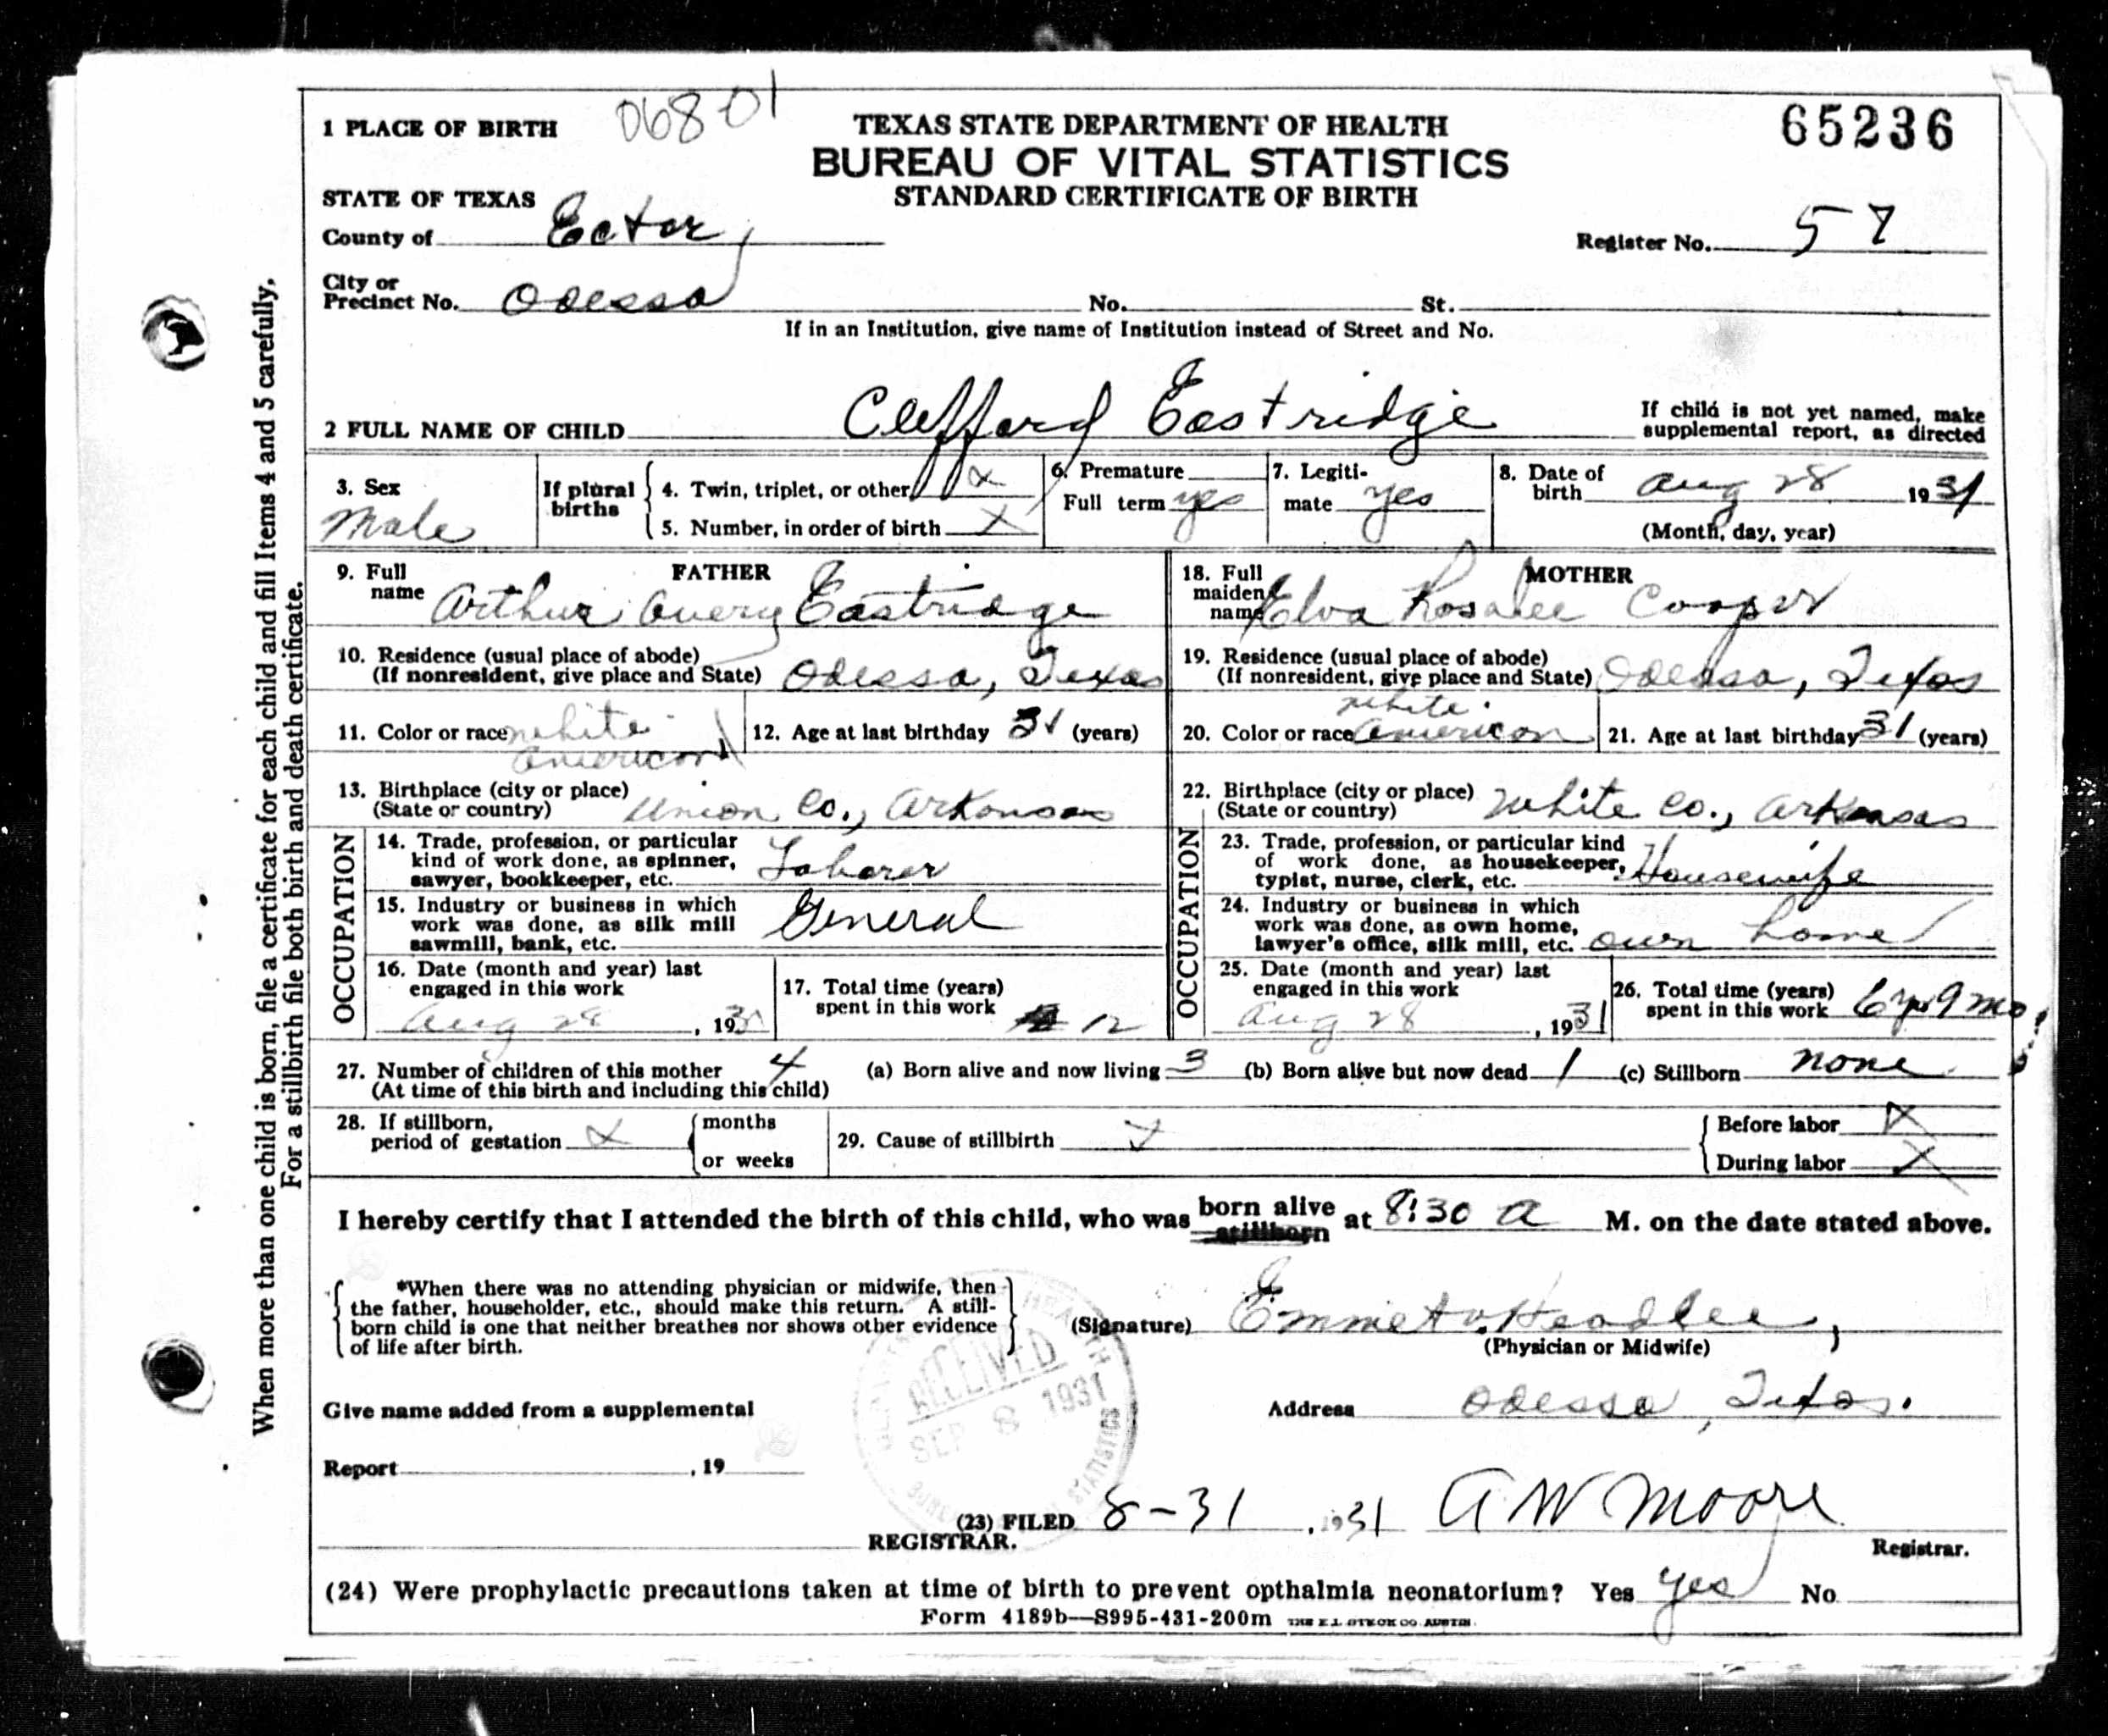 1 PLACE OF BIRTH
06801
TEXAS STATE DEPARTMENT OF HEALTH
65236
BUREAU OF VITAL STATISTICS
STANDARD CERTIFICATE OF BIRTH
STATE OF TEXAS
County of Ector
Register No. 57
City or
Precinct No. Odessa No. St.
If in an Institution, give name of Institution instead of Street and No.
2 FULL NAME OF CHILD Clifford Eastridge
If child is not yet named, make
supplemental report, as directed
3. Sex
Male
If plural
births
4. Twin, triplet, or other x
5. Number, in order of birth x
6. Premature
Full term yes
7. Legiti-
mate yes
8. Date of
birth Aug 28 1931
(Month, day, year)
FATHER
9. Full
name Arthur Avery Eastridge
10. Residence (usual place of abode)
(If nonresident, give place and State) Odessa, Texas
11. Color or race white
American
12. Age at last birthday 31 (years)
13. Birthplace (city or place)
(State or country) Union Co., Arkansas
OCCUPATION
14. Trade, profession, or particular
kind of work done, as spinner,
sawyer, bookkeeper, etc. Laborer
15. Industry or business in which
work was done, as silk mill
sawmill, bank, etc. General
16. Date (month and year) last
engaged in this work
Aug 28, 1931
17. Total time (years)
spent in this work 12
MOTHER
18. Full
maiden
name Elva Rosalee Cooper
19. Residence (usual place of abode)
(If nonresident, give place and State) Odessa, Texas
white
20. Color or race American
21. Age at last birthday 31 (years)
22. Birthplace (city or place)
(State or country) White Co., Arkansas
OCCUPATION
23. Trade, profession, or particular kind
of work done, as housekeeper,
typist, nurse, clerk, etc. Housewife
24. Industry or business in which
work was done, as own home,
lawyer's office, silk mill, etc. own home
25. Date (month and year) last
engaged in this work
Aug 28, 1931
26. Total time (years)
spent in this work 6 yr 9 mo.
27. Number of children of this mother 4
(At time of this birth and including this child)
(a) Born alive and now living 3 (b) Born alive but now dead 1 (c) Stillborn none
28. If stillborn,
period of gestation x
months
or weeks
29. Cause of stillbirth x
Before labor x
During labor x
I hereby certify that I attended the birth of this child, who was born alive
stillborn at 8:30 a M. on the date stated above.
*When there was no attending physician or midwife, then
the father, householder, etc., should make this return. A still-
born child is one that neither breathes nor shows other evidence
of life after birth.
(Signature) Emmet V. Headlee,
(Physician or Midwife)
RECEIVED
SEP 8 1931
Give name added from a supplemental
Address Odessa, Texas.
Report , 19
(23) FILED 8-31, 1931 A W Moore
REGISTRAR.
Registrar.
(24) Were prophylactic precautions taken at time of birth to prevent opthalmia neonatorium? Yes yes No
Form 4189b—S995-431-200m THE E.L. STECK CO. AUSTIN
When more than one child is born, file a certificate for each child and fill Items 4 and 5 carefully,
For a stillbirth file both birth and death certificate.